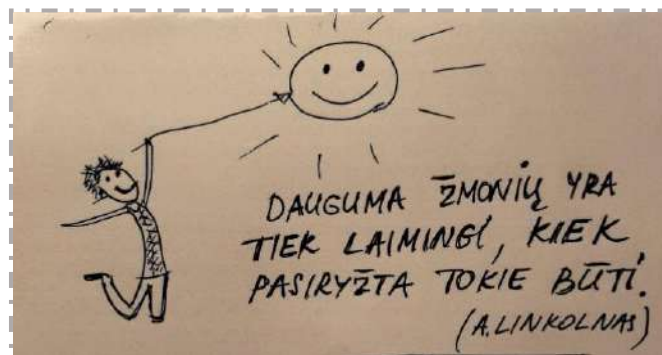 DAUGUMA ŽMONIŲ YRA
TIEK LAIMINGI, KIEK
PASIRYŽTA TOKIE BŪTI.
(A. LINKOLNAS)